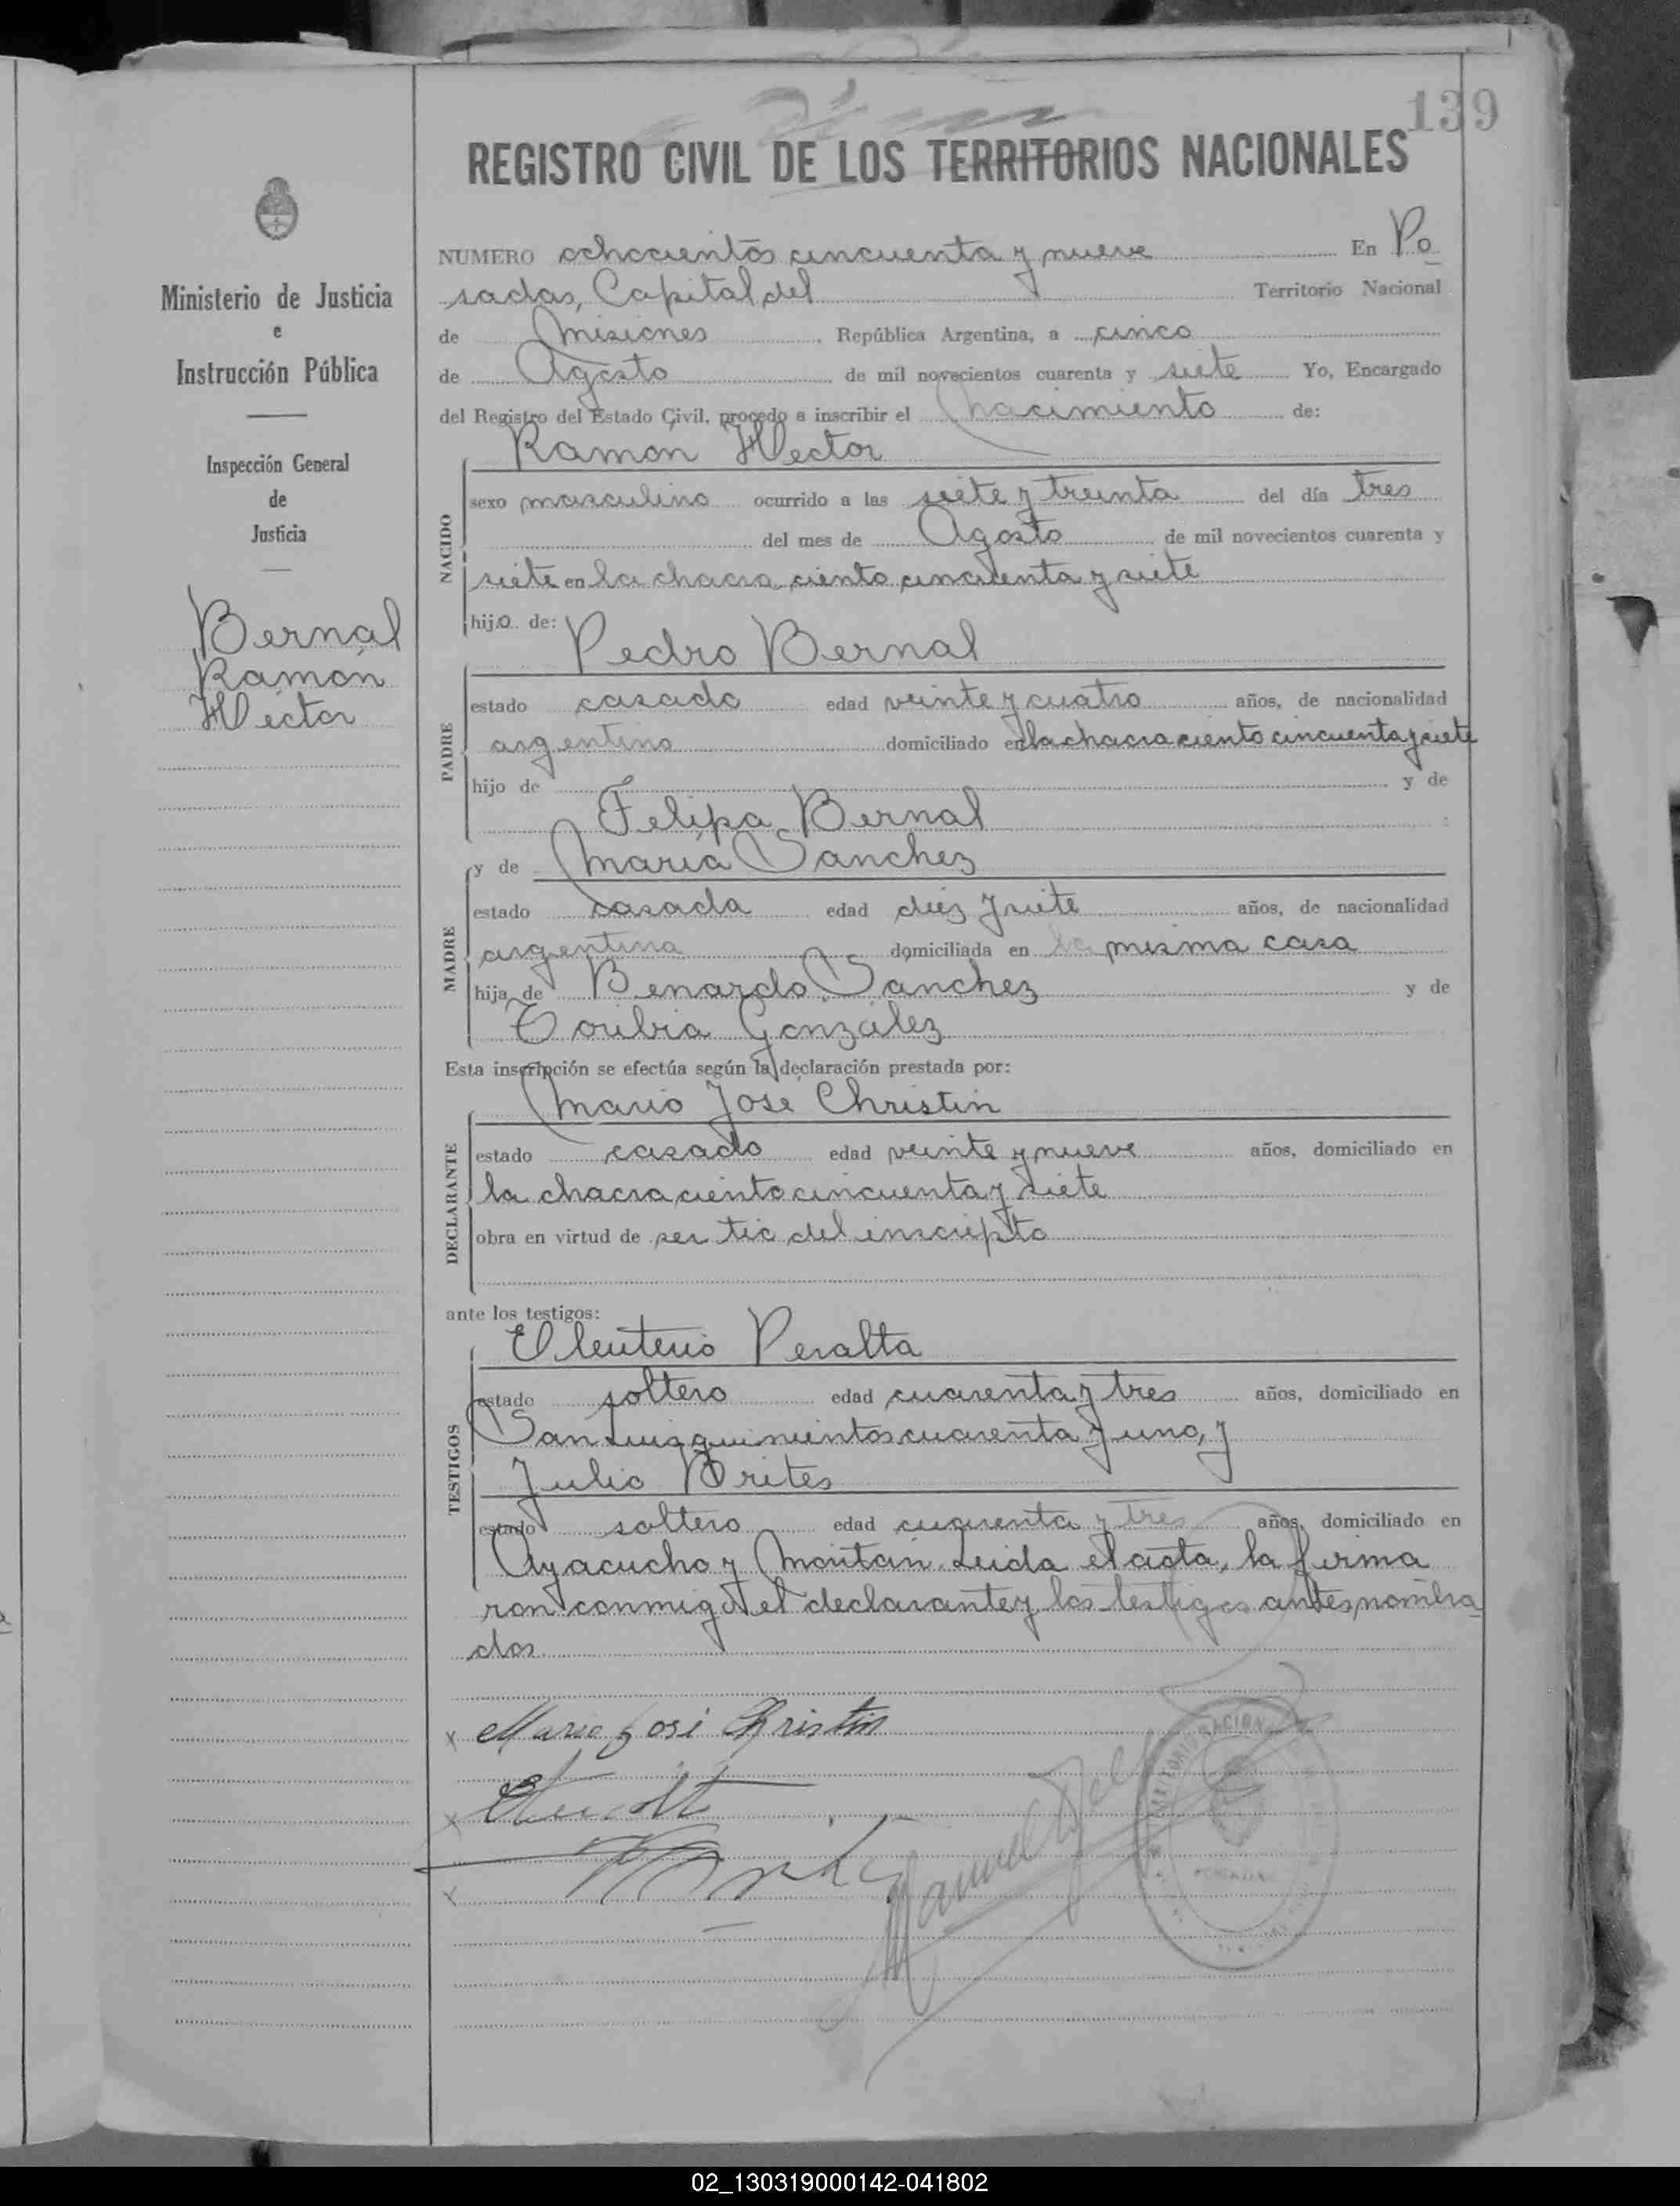 139
REGISTRO CIVIL DE LOS TERRITORIOS NACIONALES
Ministerio de Justicia
e
Instrucción Pública
Inspección General
de
Justicia
Bernal
Ramón
Hector
NUMERO ochocientos cincuenta y nueve En Po
sadas, Capital del Territorio Nacional
de Misiones, República Argentina, a cinco
de Agosto de mil novecientos cuarenta y siete Yo, Encargado
del Registro del Estado Civil, procedo a inscribir el nacimiento de:
Ramón Hector
NACIDO
sexo masculino ocurrido a las siete y treinta del día tres
del mes de Agosto de mil novecientos cuarenta y
siete en la chacra ciento cincuenta y siete
hijo de:
Pedro Bernal
PADRE
estado casado edad veinte y cuatro años, de nacionalidad
argentino domiciliado en la chacra ciento cincuenta y siete
hijo de y de
Felipa Bernal
y de María Sanchez
MADRE
estado casada edad diez y siete años, de nacionalidad
argentina domiciliada en la misma casa
hija de Benardo Sanchez y de
Toribia González
Esta inscripción se efectúa según la declaración prestada por:
Mario José Christin
DECLARANTE
estado casado edad veinte y nueve años, domiciliado en
la chacra ciento cincuenta y siete
obra en virtud de ser tio del inscripto
ante los testigos:
Eleuterio Peralta
TESTIGOS
estado soltero edad cuarenta y tres años, domiciliado en
San Luis quinientos cuarenta y uno, y
Julio Brites
estado soltero edad cuarenta y tres años, domiciliado en
Ayacucho y Moritán. Leida el acta, la firma
ron conmigo el declarante y los testigos antes nombra
dos.
x Mario José Christin
x
x
Manuel
02_130319000142-041802